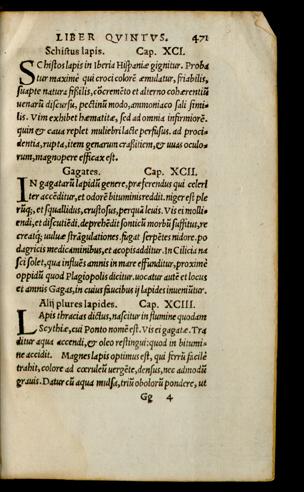 LIBER QVINTVS. 471
Schistus lapis. Cap. XCI.
SChistos lapis in Iberia Hispaniæ gignitur. Proba
tur maximè qui croci colorē æmulatur, friabilis,
suapte natura fißilis, cōcremēto et alterno cohærentiū
venarū discursu, pectinū modo, ammoniaco sali simi-
lis. Vim exhibet hæmatitæ, sed ad omnia infirmiorē.
quin & caua replet muliebri lacte perfusus. ad proci
dentia, rupta, item genarum craßitiem, & uuas oculo-
rum, magnopere efficax est.
Gagates. Cap. XCII.
IN gagatarū lapidū genere, præferendus qui celeri
ter accēditur, et odorē bituminis reddit. niger est ple
rūq;, et squallidus, crustosus, perquā leuis. Vis ei molli-
endi, et discutiēdi. deprehēdit sonticū morbū suffitus, re
creatq́; uuluæ strāgulationes. fugat serpētes nidore. po
dagricis medicaminibus, et acopis additur. In Cilicia na
sci solet, qua influēs amnis in mare effunditur, proximè
oppidū quod Plagiopolis dicitur. uocatur autē et locus
et amnis Gagas, in cuius faucibus ij lapides inueniūtur.
Alij plures lapides. Cap. XCIII.
LApis thracias dictus, nascitur in flumine quodam
Scythiæ, cui Ponto nomē est. Vis ei gagatæ. Tra
ditur aqua accendi, & oleo restingui: quod in bitumi-
ne accidit. Magnes lapis optimus est, qui ferrū facilè
trahit, colore ad cœruleū uergēte, densus, nec admodū
grauis. Datur cū aqua mulsa, triū obolorū pondere, ut
Gg 4